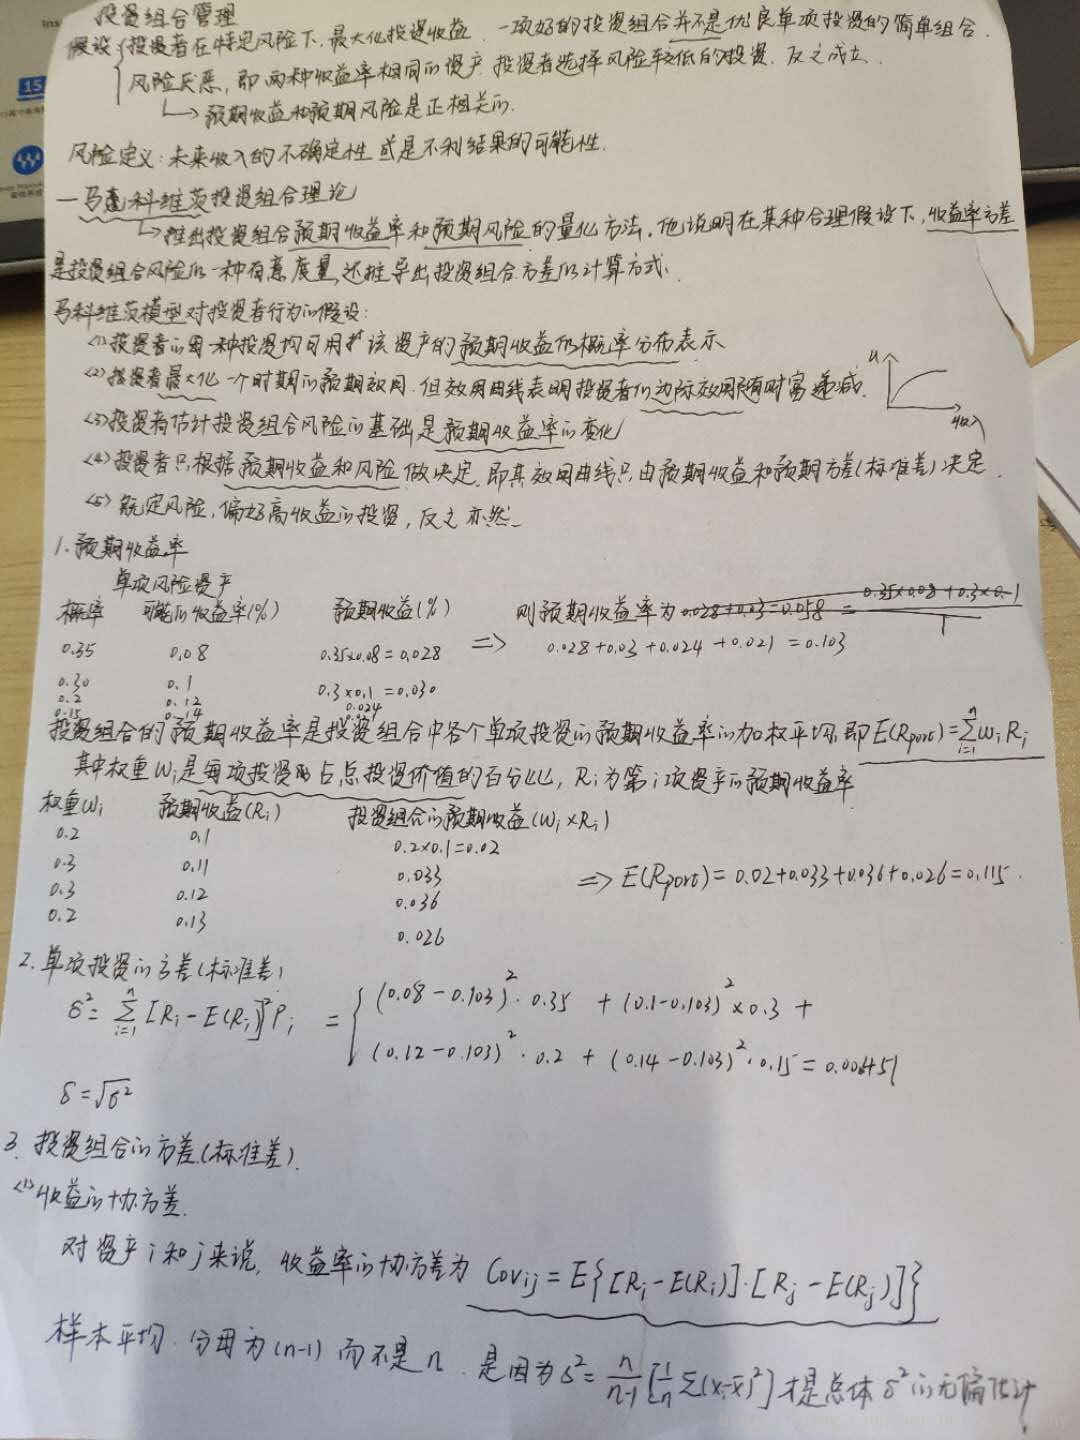 投资组合管理
假设 投资者在特定风险下,最大化投资收益. 一项好的投资组合并不是优良单项投资的简单组合.
风险厌恶,即两种收益率相同的资产,投资者选择风险较低的投资. 反之成立.
→预期收益和预期风险是正相关的.
风险定义:未来收入的不确定性或是不利结果的可能性.
一 马科维茨投资组合理论
→推出投资组合预期收益率和预期风险的量化方法. 他说明在某种合理假设下,收益率方差
是投资组合风险的一种有意度量,还推导出投资组合方差的计算方式.
马科维茨模型对投资者行为的假设:
<1>投资者的每一种投资均可用该资产的预期收益的概率分布表示
<2>投资者最大化一个时期的预期效用.但效用曲线表明投资者的边际效用随财富递减.
U
收入
<3>投资者估计投资组合风险的基础是预期收益率的变化
<4>投资者只根据预期收益和风险做决定.即其效用曲线只由预期收益和预期方差(标准差)决定.
<5>既定风险,偏好高收益的投资,反之亦然.
1.预期收益率
单项风险资产
概率 可能的收益率(%) 预期收益(%) 则预期收益率为 0.028+0.03=0.058 = 0.35×0.08+0.3×0.1 / 1
0.35 0.08 0.35×0.08=0.028 => 0.028+0.03+0.024+0.021=0.103
0.30 0.1 0.3×0.1=0.030
0.2 0.12 0.024
0.15 0.14
投资组合的预期收益率是投资组合中各个单项投资的预期收益率的加权平均,即E(Rport)=∑_{i=1}^{n}WiRi
其中权重Wi是每项投资所占总投资价值的百分比,Ri为第i项资产的预期收益率
权重Wi 预期收益(Ri) 投资组合的预期收益(Wi×Ri)
0.2 0.1 0.2×0.1=0.02
0.3 0.11 0.033 => E(Rport)=0.02+0.033+0.036+0.026=0.115.
0.3 0.12 0.036
0.2 0.13 0.026
2.单项投资的方差(标准差)
δ²=∑_{i=1}^{n}[Ri-E(Ri)]²Pi = (0.08-0.103)²·0.35 + (0.1-0.103)²×0.3 +
(0.12-0.103)²·0.2 + (0.14-0.103)²·0.15=
δ=√δ²
3.投资组合的方差(标准差).
<1>收益的协方差.
对资产i和j来说,收益率的协方差为 Covij=E{[Ri-E(Ri)]·[Rj-E(Rj)]}
样本平均.分母为(n-1)而不是n.是因为δ²=n/(n-1)[1/n∑(xi-x̄)²]才是总体δ²的无偏估计